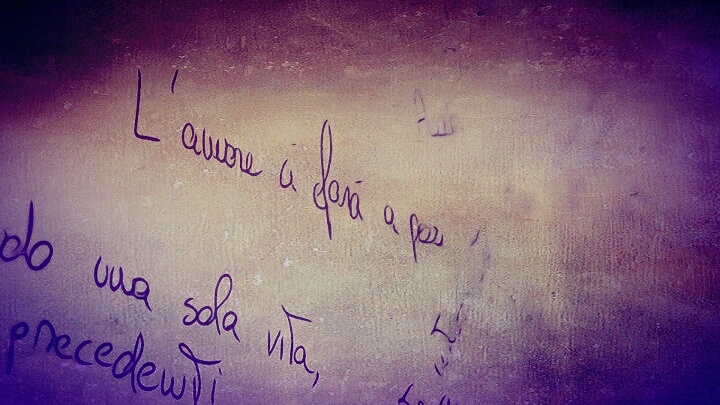 L'amore ci farà a
do una sola vita,
precedenti